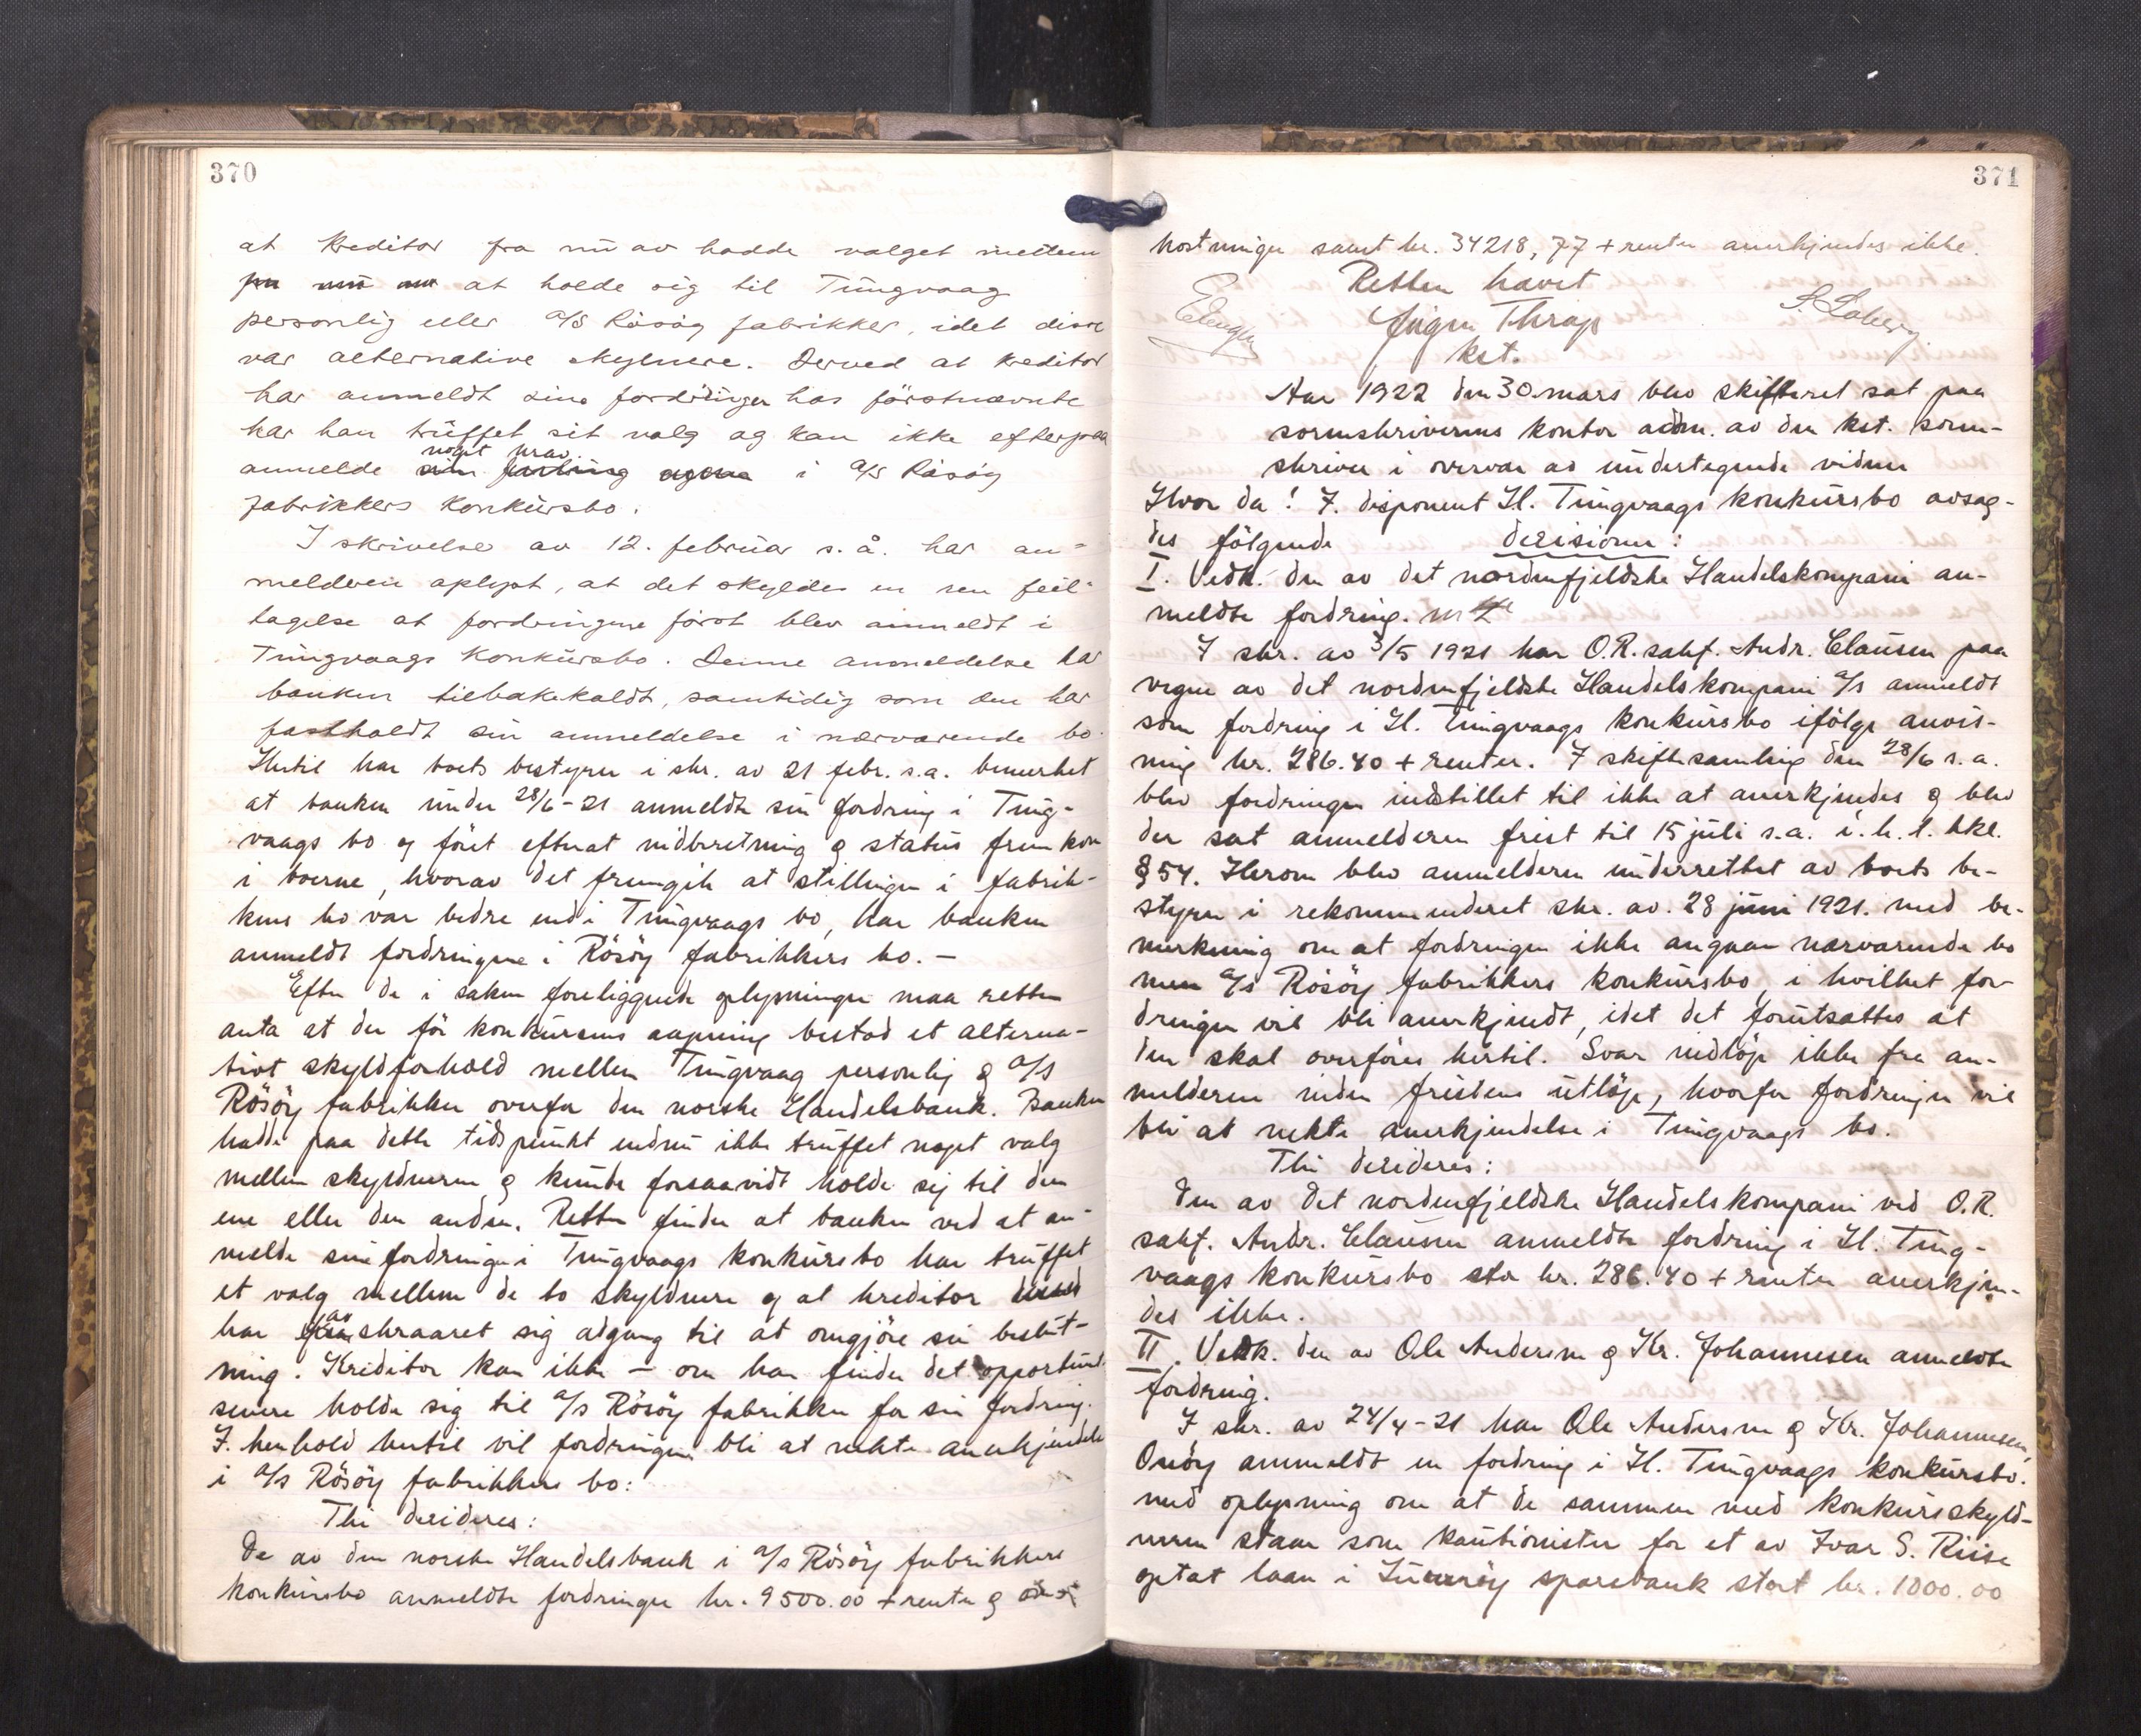 370
at kreditor fra nu av hadde valget mellem
at holde sig til Tingvaag
personlig eller A/S Rösöy fabrikker, idet disse
var alternative skylnere. Derved at kreditor
har anmeldt sine fordringer hos förstnævnte
har han truffet sit valg og kan ikke efterpaa
anmelde noget krav i A/S Rösöy
fabrikkers konkursbo.
I skrivelse av 12. februar s.å. har an-
melderen oplyst, at det skyldes en ren feil-
tagelse at fordringene först blev anmeldt i
Tingvaags konkursbo. Denne anmeldelse har
banken tilbakekaldt, samtidig som den har
fastholdt sin anmeldelse i nærværende bo.
Hertil har boets bestyrer i skr. av 21 febr. s.a. bemerket
at banken under 28/6-21 anmeldte sin fordring i Ting-
vaags bo og först efterat indberetning og status fremkom
i boerne, hvorav det fremgik at stillingen i fabrik-
kens bo var bedre end i Tingvaags bo, har banken
anmeldt fordringene i Rösöy fabrikkers bo. —
Efter de i saken foreliggende oplysninger maa retten
anta at der för konkursens aapning bestod et alterna-
tivt skyldforhold mellem Tingvaag personlig og A/S
Rösöy fabrikker overfor den norske Handelsbank. Banken
hadde paa dette tidspunkt endnu ikke truffet noget valg
mellem skyldnerne og kunde forsaavidt holde sig til den
ene eller den anden. Retten finder at banken ved at an-
melde sine fordringer i Tingvaags konkursbo har truffet
et valg mellem de to skyldnere og at kreditor
har fraskraaret sig adgang til at omgjöre sin beslut-
ning. Kreditor kan ikke — om han finder det opportunt
senere holde sig til A/S Rösöy fabrikker for sin fordring.
I henhold hertil vil fordringene bli at nekte anerkjendelse
i A/S Rösöy fabrikkers bo:
Thi desideres:
De av den norske Handelsbank i A/S Rösöy fabrikkers
konkursbo anmeldte fordringer kr. 9500.00 + renter og
371
kostninger samt kr. 34218,77 + renter anerkjendes ikke.
Retten hævet
Jürgen Thrap
kst.
Aar 1922 den 30. mars blev skifteret sat paa
sorenskriverens kontor adm. av den kst. soren-
skriver i overvær av undertegnede vidner
Hvor da! I. disponent H. Tingvaags konkursbo avsag-
des fölgende desisioner:
I. Vedk. den av det nordenfjeldske Handelskompani an-
meldte fordring.
I skr. av 3/5 1921 har O.R. sakf. Andr. Clausen paa
vegne av det nordenfjeldske Handelskompani A/S anmeldt
som fordring i H. Tingvaags konkursbo ifölge anvis-
ning kr. 286.40 + renter. I skiftesamling den 28/6 s.a.
blev fordringen indstillet til ikke at anerkjendes og blev
der sat anmelderen frist til 15 juli s.a. i.h.t. kkl.
§ 54. Herom blev anmelderen underrettet av boets be-
styrer i rekommenderet skr. av. 28 juni 1921. med be-
merkning om at fordringen ikke angaar nærværende bo
men A/S Rösöy fabrikkers konkursbo, i hvilket for-
dringen vil bli anerkjendt, idet det forutsættes at
den skal overföres hertil. Svar indlöp ikke fra an-
melderen inden fristens utlöp, hvorfor fordringen vil
bli at nekte anerkjendelse i Tingvaags bo.
Thi desideres:
Den av det nordenfjeldske Handelskompani ved O.R.
sakf. Andr. Clausen anmeldte fordring i H. Ting-
vaags konkursbo stor kr. 286.40 + renter anerkjen-
des ikke.
II. Vedk. den av Ole Andersen og Kr. Johannesen anmeldte
fordring.
I skr. av 24/4-21 har Ole Andersen og Kr. Johannesen,
Onöy anmeldt en fordring i H. Tingvaags konkursbo.
med oplysning om at de sammen med konkursskyld-
neren staar som kautionister for et av Ivar S. Riise
optat laan i Luröy sparebank stort kr. 1000.00